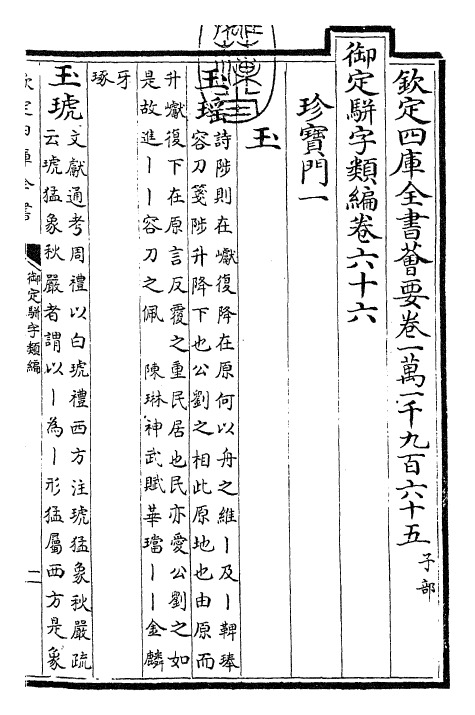 欽定四庫全書薈要卷一萬一千九百六十五 子部
御定駢字類編卷六十六
珍寶門一
玉
玉瑤 詩陟則在巘復降在原何以舟之維丨及丨鞞琫
容刀箋陟升降下也公劉之相此原地也由原而
升巘復下在原言反覆之重民居也民亦愛公劉之如
是故進丨丨容刀之佩 陳琳神武賦華璫丨丨金麟
牙
琢
玉琥 文獻通考周禮以白琥禮西方注琥猛象秋嚴疏
云琥猛象秋嚴者謂以丨為丨形猛屬西方是象
欽定四庫全書
御定駢字類編